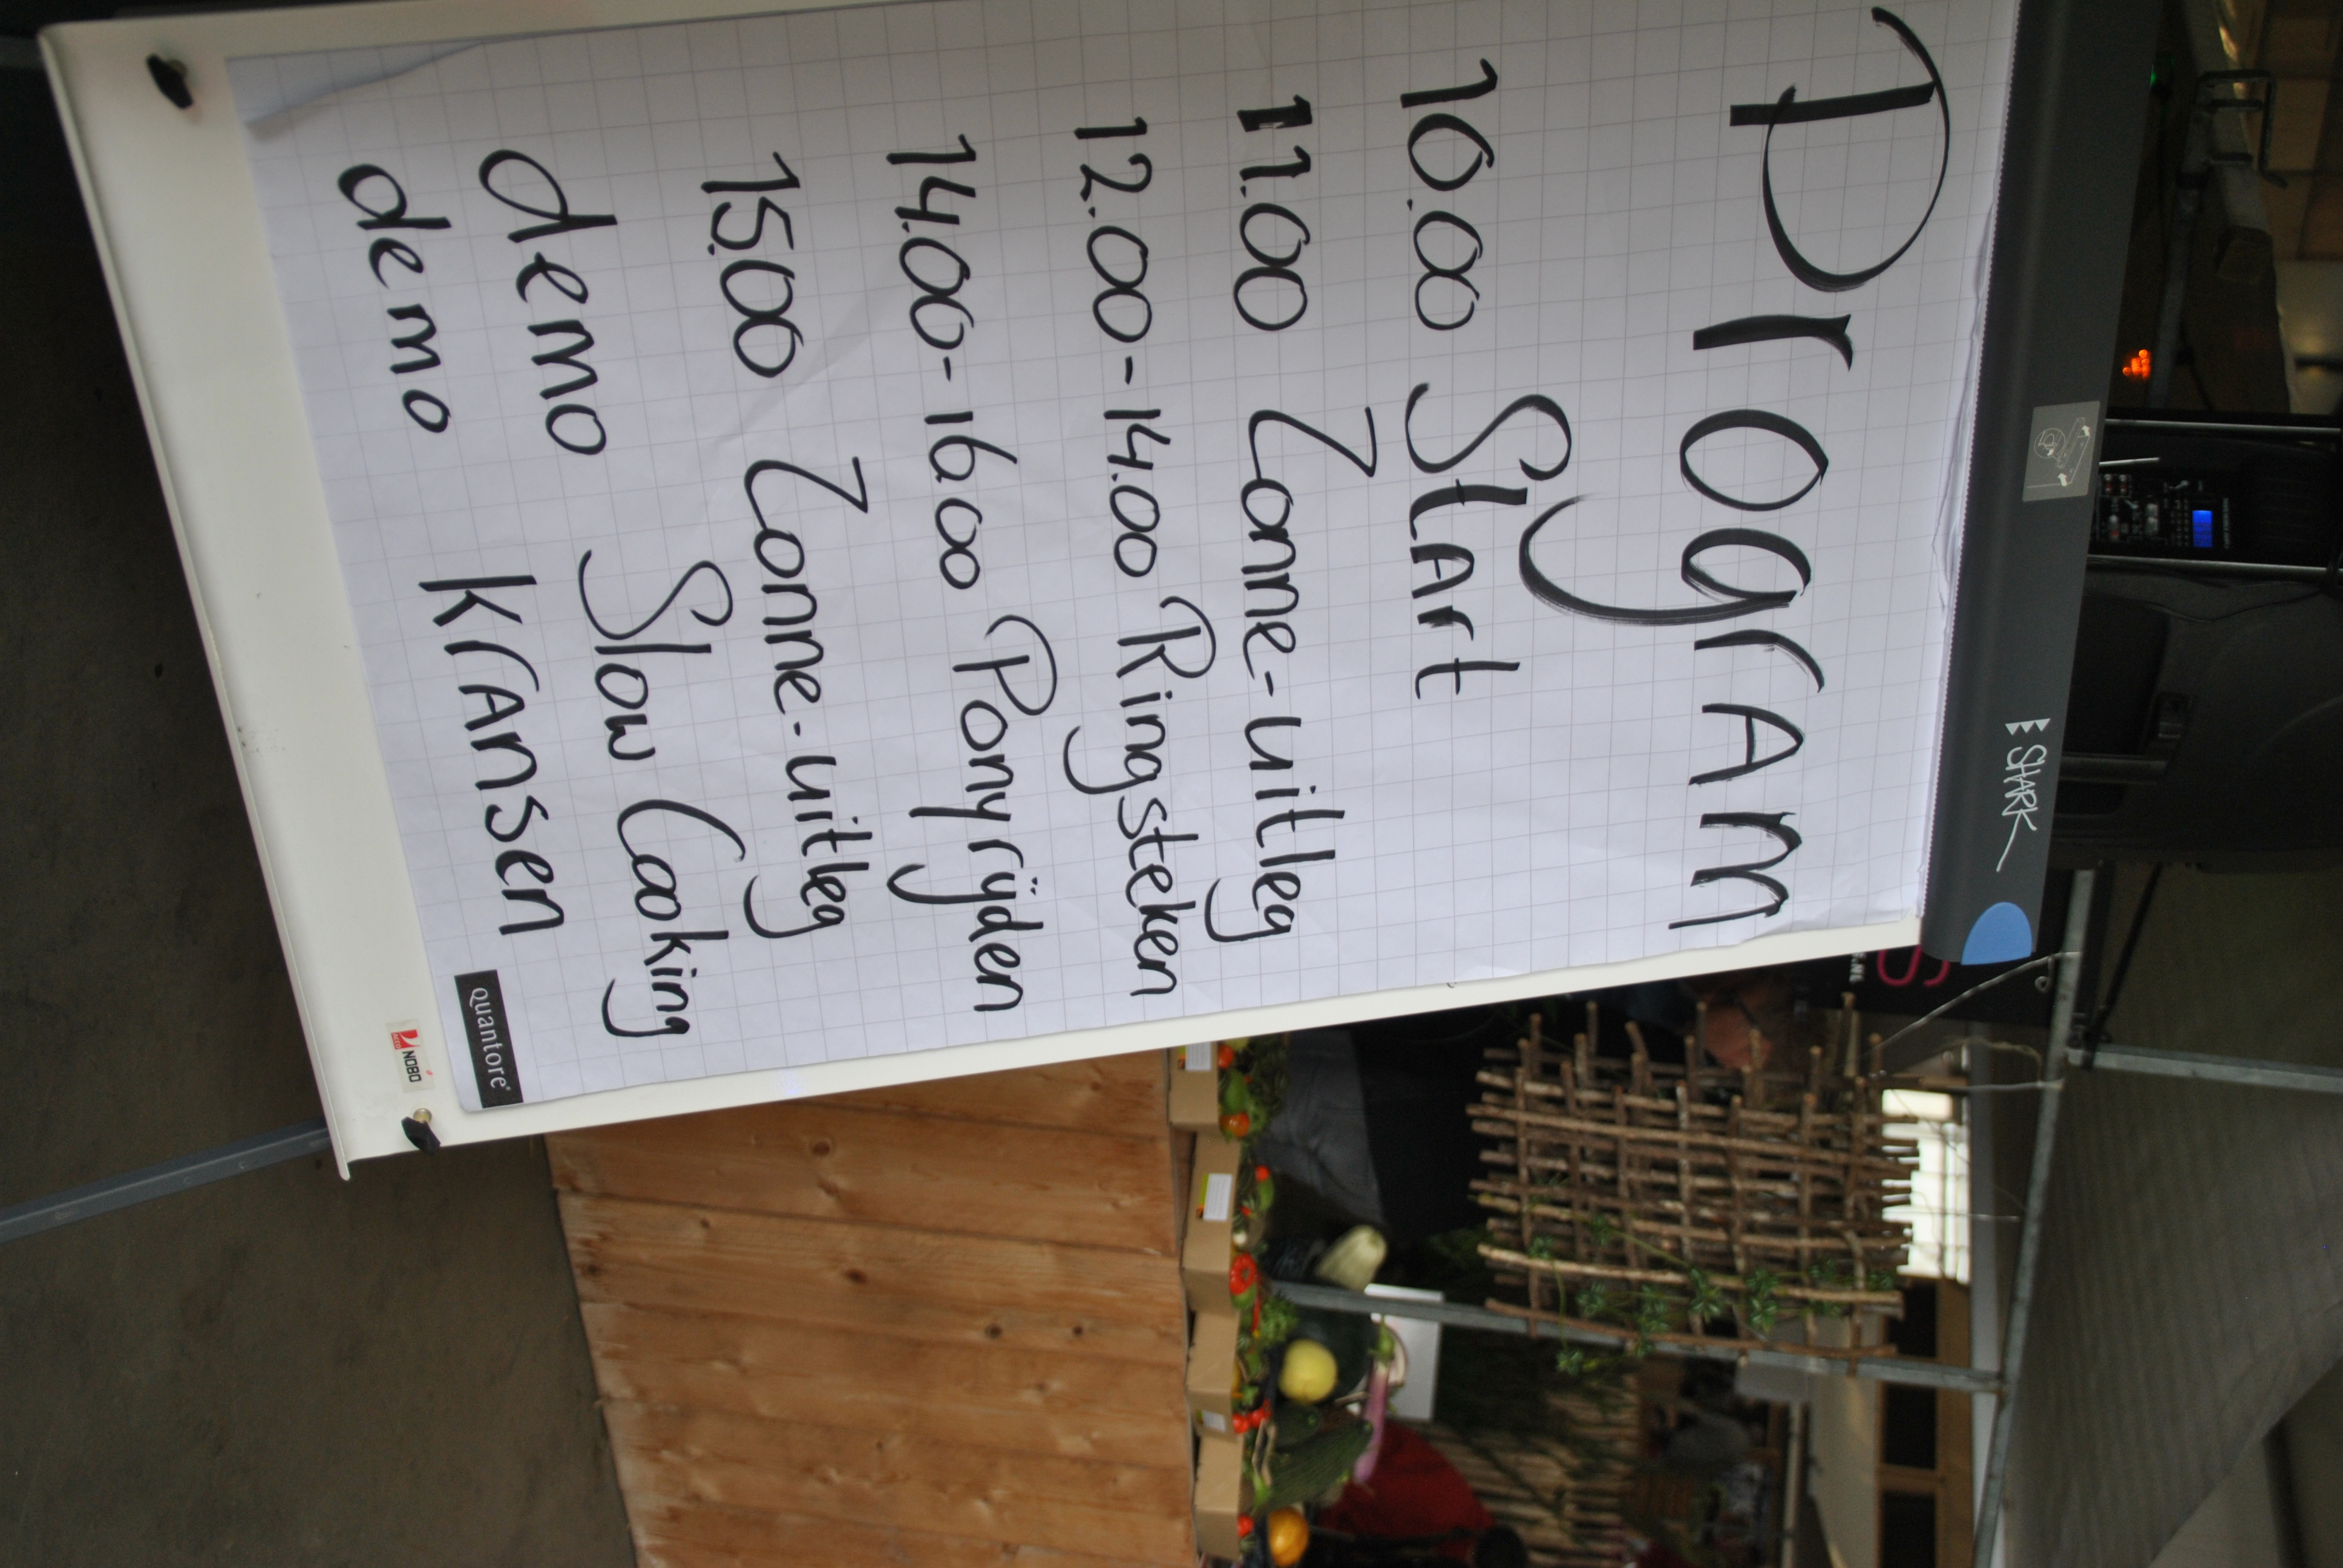 Program
10.00 Start
11.00 Zonne-uitleg
12.00-14.00 Ringsteken
14.00-16.00 Ponyrijden
15.00 Zonne-uitleg
demo Slow Cooking
demo Kransen
quantore
NOBO
SHARK